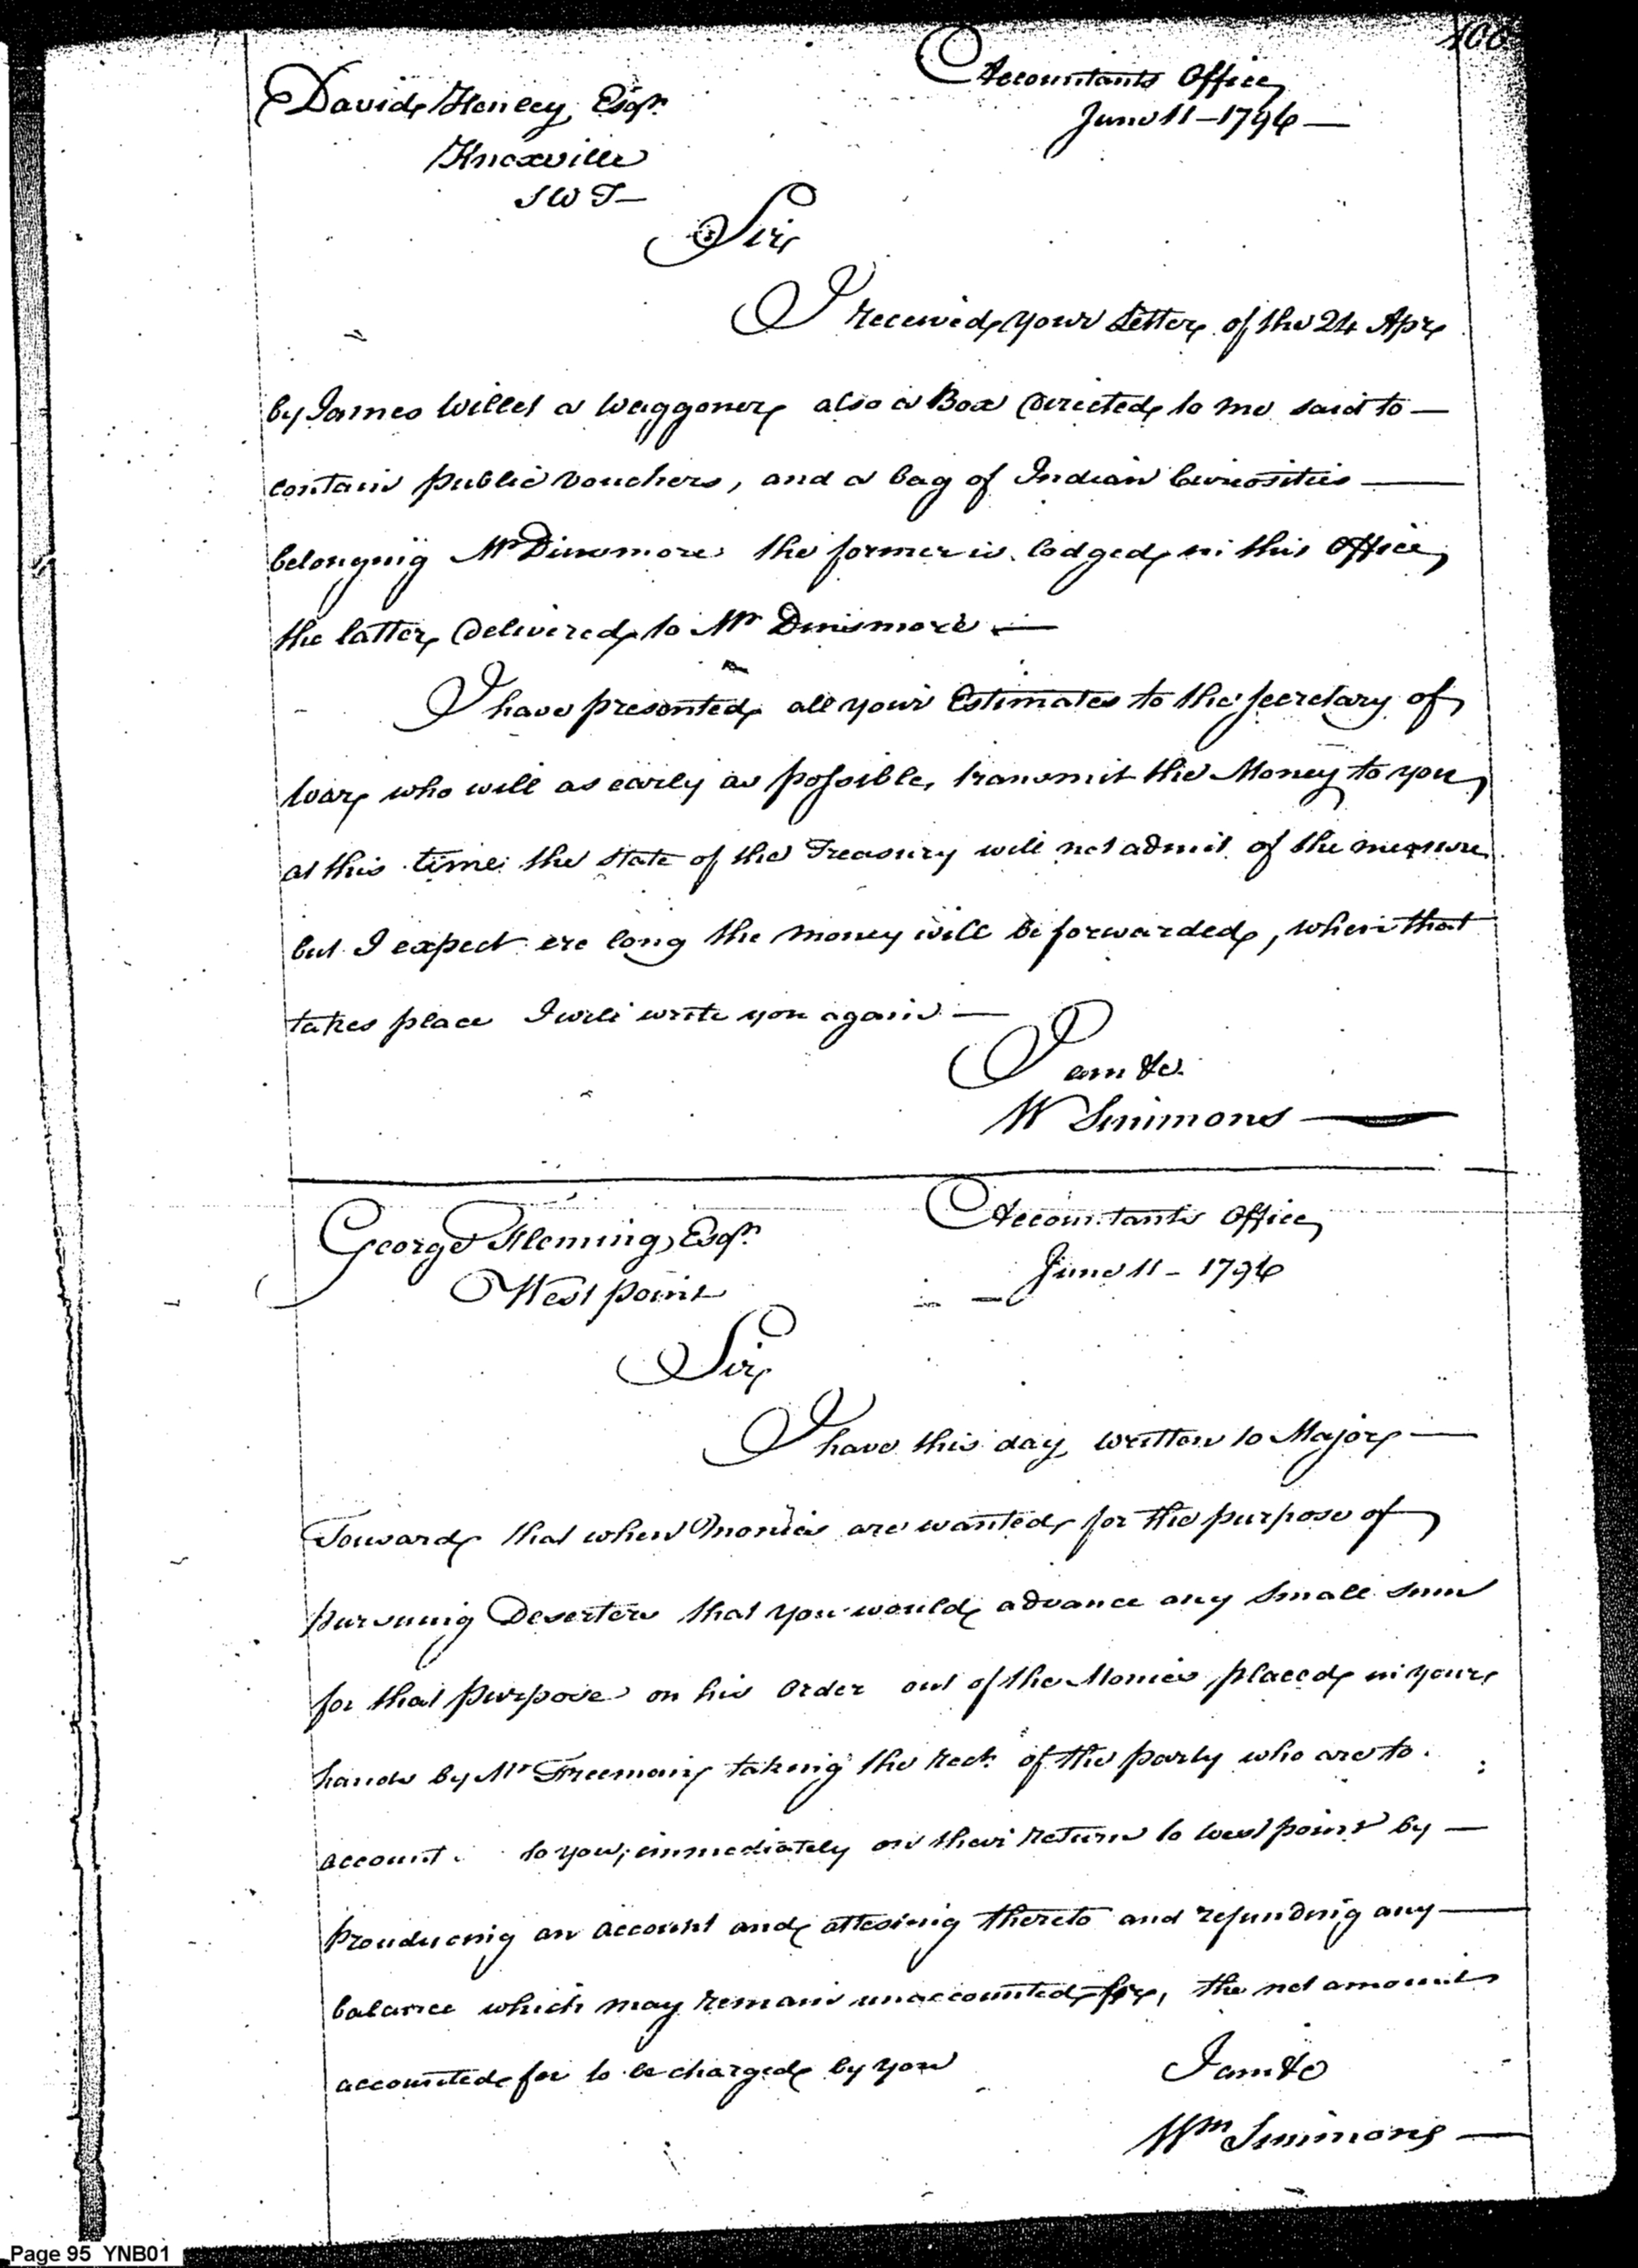 106
Accountants Office
David Henley Esqr.
June 11 - 1796 —
Knoxville
S W T —
Sir
I received your Letter of the 24 Apr
by James Willet a Waggoner also a Box Directed to me said to —
contain public vouchers, and a bag of Indian Curiosities —
belonging Mr Dinsmore the former is lodged in this Office,
the latter Delivered to Mr Dinsmore —
I have presented all your Estimates to the Secretary of
War who will as early as possible, transmit the Money to you,
at this time the state of the Treasury will not admit of the measure
but I expect ere long the money will be forwarded, when that
takes place I will write you again —
I am &c.
W Simmons —
Accountants Office
George Fleming, Esqr.
June 11 - 1796
West point
Sir
I have this day written to Major —
Touward that when Monies are wanted for the purpose of
pursuing Deserters that you would advance any small sum
for that purpose on his order out of the Monies placed in your
hands by Mr Freeman taking the rect. of the party who are to
account to you, immediately on their return to west point by —
prouducing an account and attesing thereto and refunding any —
balance which may remain unaccounted for, the net amount
accounted for to be charged by you
I am &c
Wm Simmons —
Page 95 YNB01